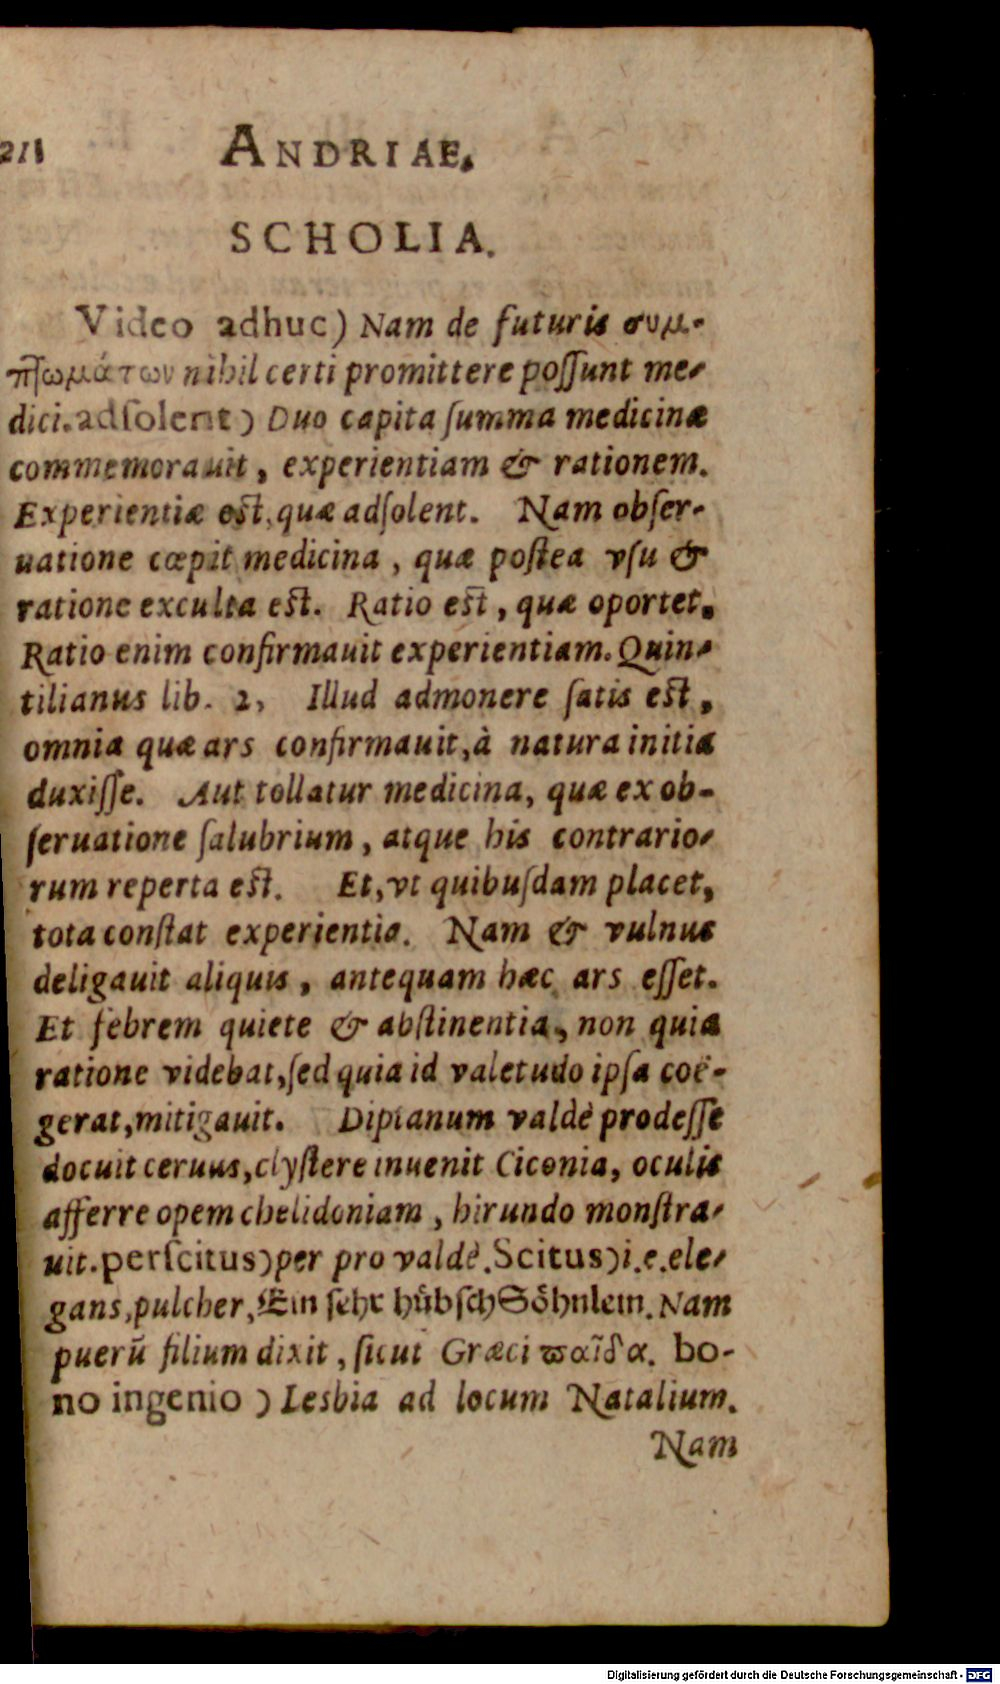 211 ANDRIAE.
SCHOLIA.
Video adhuc) Nam de futuris συμ-
πτωμάτων nihil certi promittere poſſunt me-
dici. adſolent) Duo capita ſumma medicinæ
commemorauit, experientiam & rationem.
Experientiæ eſt, quæ adſolent. Nam obſer-
uatione cœpit medicina, quæ poſtea vſu &
ratione exculta eſt. Ratio eſt, quæ oportet.
Ratio enim confirmauit experientiam. Quin-
tilianus lib. 2, Illud admonere ſatis eſt,
omnia quæ ars confirmauit, à natura initia
duxiſſe. Aut tollatur medicina, quæ ex ob-
ſeruatione ſalubrium, atque his contrario-
rum reperta eſt. Et, vt quibuſdam placet,
tota conſtat experientia. Nam & vulnus
deligauit aliquis, antequam hæc ars eſſet.
Et febrem quiete & abſtinentia, non quia
ratione videbat, ſed quia id valetudo ipſa coë-
gerat, mitigauit. Diptanum valdè prodeſſe
docuit ceruus, clyſtere inuenit Ciconia, oculis
afferre opem chelidoniam, hirundo monſtra-
uit. perſcitus) per pro valdè. Scitus) i.e. ele-
gans, pulcher, Ein ſehr hůbſch Sőhnlein. Nam
puerū filium dixit, ſicut Græci παῖδα. bo-
no ingenio) Lesbia ad locum Natalium.
Nam
Digitalisierung gefördert durch die Deutsche Forschungsgemeinschaft - DFG